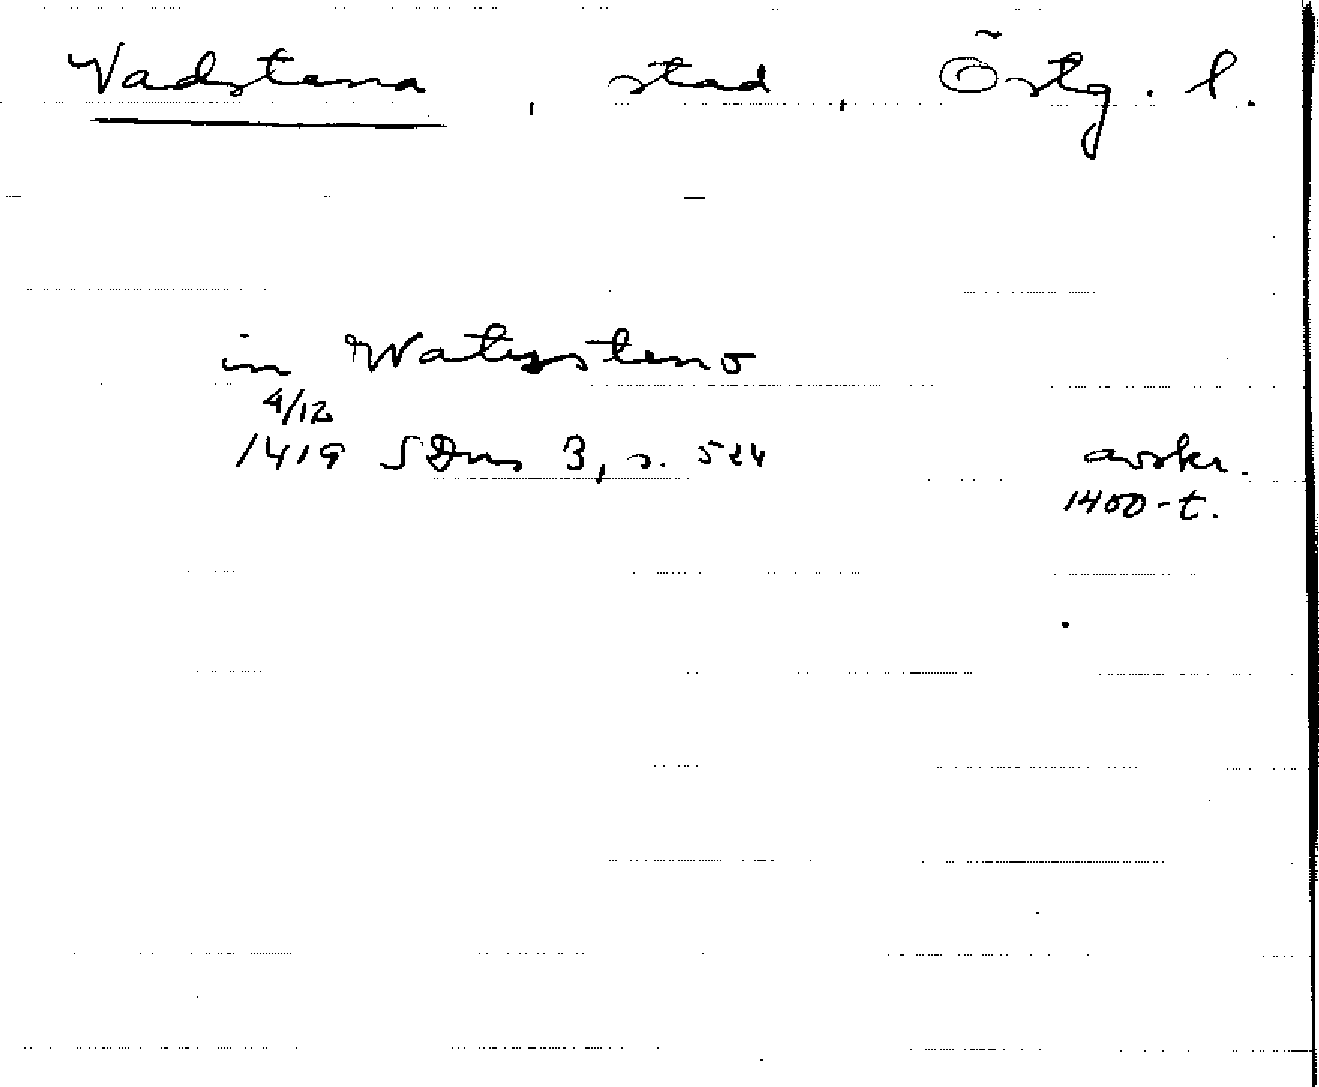 Vadstena, stad, Östg. l.
in Watzsteno
4/12
1419 SDns 3, s. 524 avskr.
1400-t.